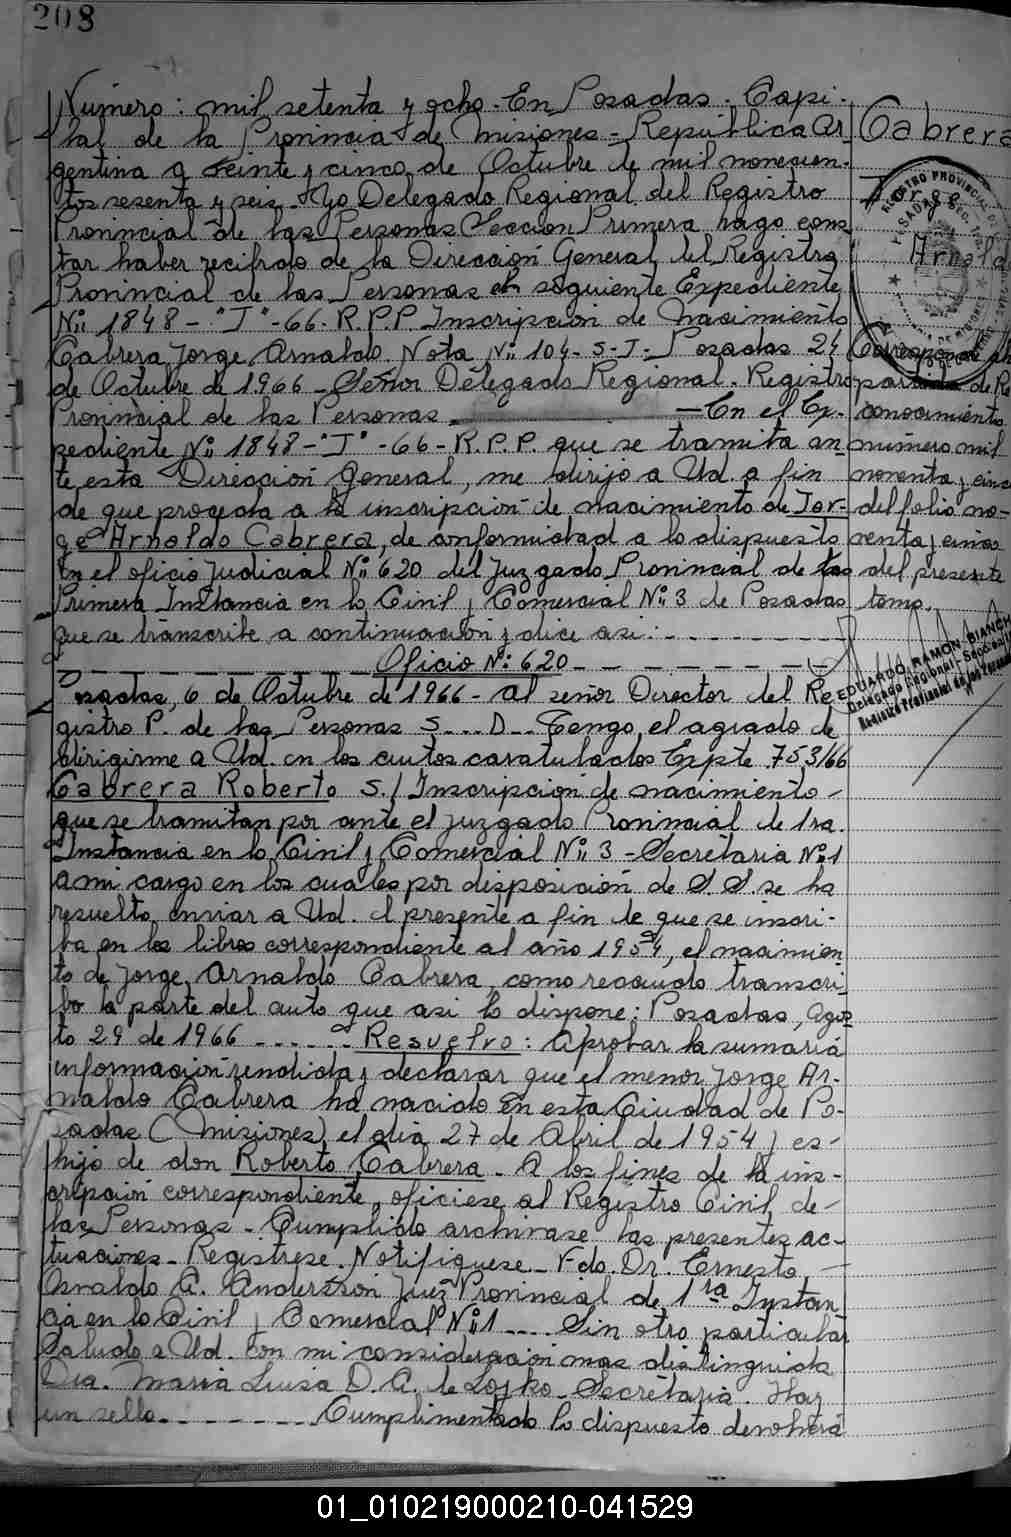 208
Número: mil setenta y ocho. En Posadas. Capi-
tal de la Provincia de Misiones - República Ar
gentina a veinte y cinco de Octubre de mil novecien-
tos sesenta y seis. Yo Delegado Regional del Registro
Provincial de las Personas Sección Primera hago cons
tar haber recibido de la Dirección General del Registro
Provincial de las Personas el siguiente Expediente
Nº 1848 - "J" - 66 - R.P.P. Inscripción de Nacimiento
Cabrera Jorge Arnaldo. Nota Nº 104 - S - J - Posadas 24
de Octubre de 1966 - Señor Delegado Regional. Registro
Provincial de las Personas. — En el Ex-
pediente Nº 1848 - "J" - 66 - R.P.P. que se tramita an
te esta Dirección General, me dirijo a Ud. a fin
de que proceda a la inscripción de nacimiento de Jor-
ge Arnaldo Cabrera, de conformidad a lo dispuesto
en el oficio Judicial Nº 620 del Juzgado Provincial de
Primera Instancia en lo Civil y Comercial Nº 3 de Posadas
que se transcribe a continuación y dice así: - - - - - - -
- - - - - - - Oficio Nº 620 - - - - - - -
Posadas, 6 de Octubre de 1966 - Al señor Director del Re
gistro P. de las Personas S....D.. Tengo el agrado de
dirigirme a Ud. en los autos caratulados Expte. 753/66
Cabrera Roberto S./ Inscripción de nacimiento -
que se tramitan por ante el Juzgado Provincial de 1ra.
Instancia en lo Civil y Comercial Nº 3 - Secretaria Nº 1
a mi cargo en los cuales por disposición de S.S. se ha
resuelto enviar a Ud. el presente a fin de que se inscri-
ba en los libros correspondiente al año 1954, el nacimien
to de Jorge Arnaldo Cabrera, como recaudo transcri
bo la parte del auto que así lo dispone: Posadas, Agos
to 29 de 1966 ------ Resuelvo: Aprobar la sumaria
información rendida y declarar que el menor Jorge Ar-
naldo Cabrera ha nacido en esta Ciudad de Po-
sadas (Misiones) el día 27 de Abril de 1954 y es -
hijo de don Roberto Cabrera. A los fines de la ins-
cripción correspondiente, ofíciese al Registro Civil de -
las Personas - Cumplido archívase las presentes ac-
tuaciones - Regístrese. Notifíquese - Fdo. Dr. Ernesto
Osvaldo A. Andersson Juez Provincial de 1ra Instan
cia en lo Civil y Comercial Nº 1 .... Sin otro particular
saludo a Ud. con mi consideración mas distinguida
Dra. Maria Luisa D. A. de Lojko - Secretaria. Hay
un sello - - - - - - - Cumplimentado lo dispuesto devolverá
Cabrera
Jorge
Arnaldo
Corresponde al
partida de Re
conocimiento
número mil
noventa y cinco
del folio no-
venta y cinco
del presente
tomo.
EDUARDO RAMON BIANCH
Delegado Regional - Sección 1ª
Registro Provincial de las Personas
01_010219000210-041529